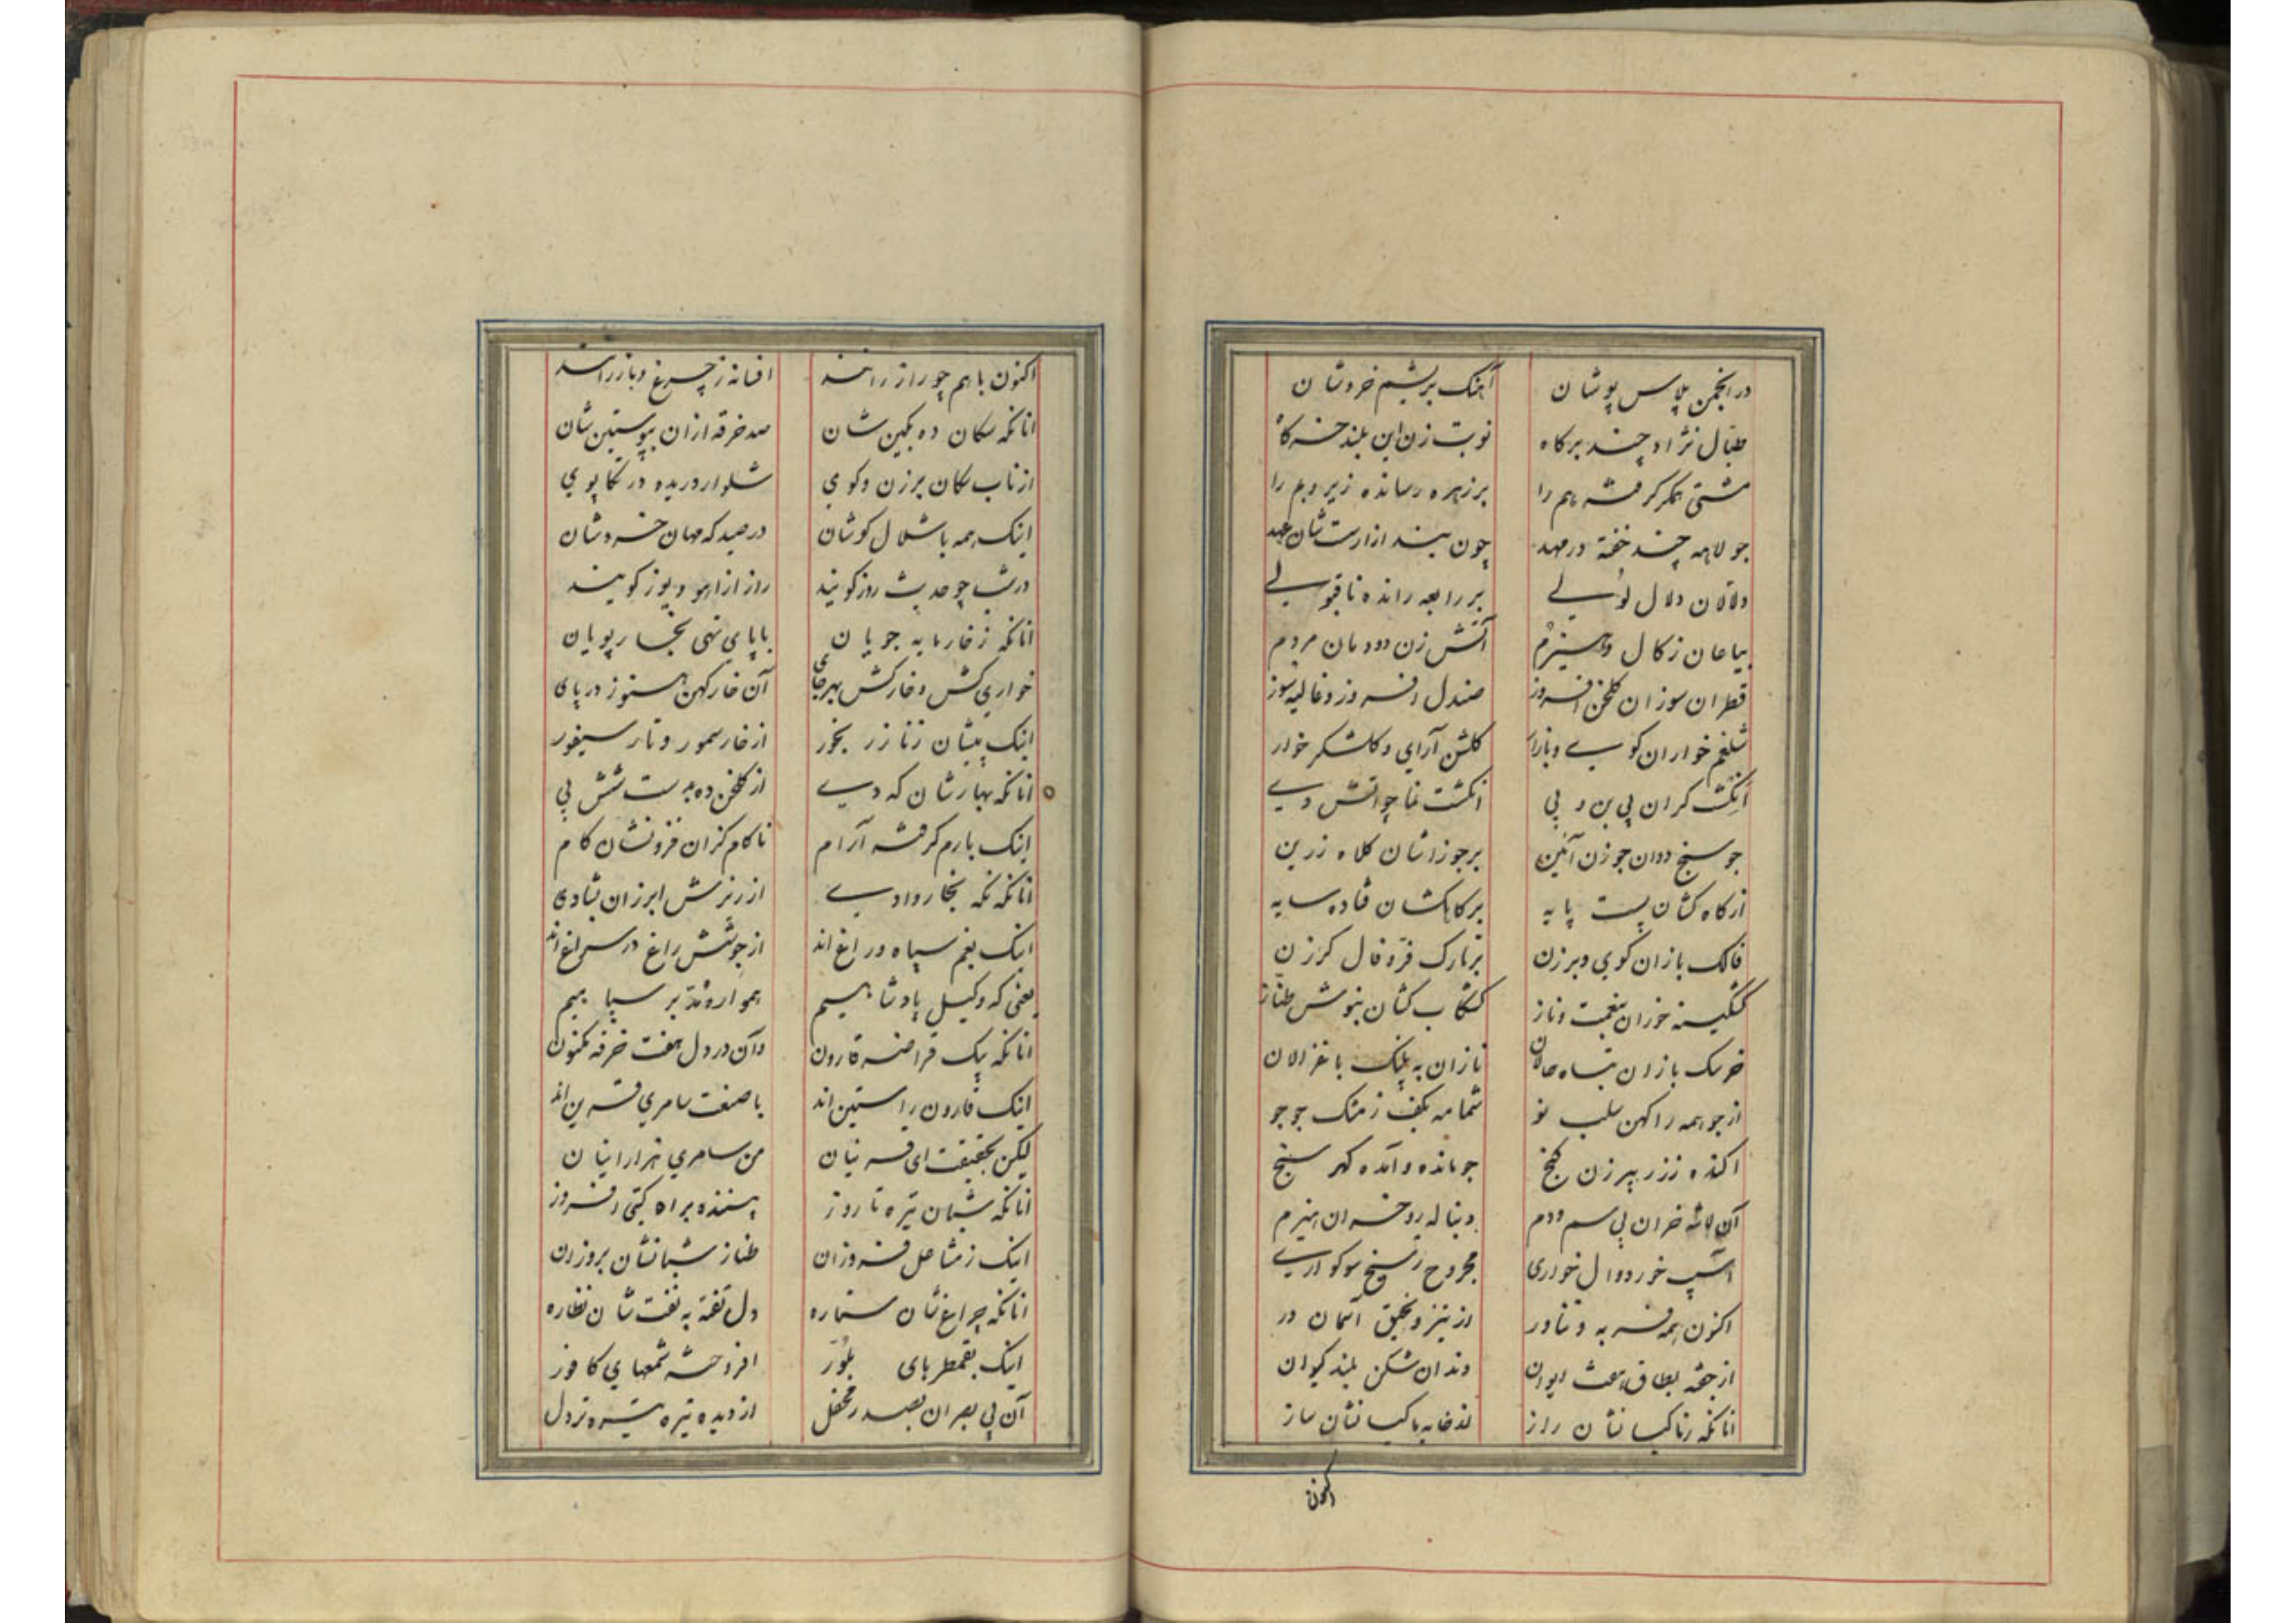 در انجمن پلاس پوشان آهنگ بریشم خروشان
طبال نژاد چند برکاه نوبت زن این بلند خرکاه
مشتی همکر کرفته هم را بر زهره رسانده زیر و بم را
جولاهه چند خفته در مهد چون بیند از ارت شان عهد
دلالان دلال لولی بر رابعه رانده ناقبولی
بیاعان زکال و هیزم آتش زن دودمان مردم
قطران سوزان کلخن افروز صندل افروز و غالیه سوز
شلغم خواران کوی و بازار کلشن آرای و کلشکر خوار
انکشت کران بی بن و پی انکشت نما چو آتش دی
جو سنج ددان جوزن آئین بر جوزاشان کلاه زرین
از کاه کشان پست پایه بر کاهکشان فتاده سایه
فالک بازان کوی و برزن بر تارک فرو فال کرزن
کشکینه خوران بنعمت و ناز کشکاب کشان بنوش طناز
خرسک بازان تباه حالان نازان به پلنک با غزالان
از جو همه را کهن سلب نو شمامه بکف ز مشک جو جو
اکنده ز زر پیرزن کنج جو مانده و آمده کهر سنج
آن لاشه خران بی سم و دم دنباله رو خران هیزم
اسپ خور دوال خواری مجروح ز سیخ سوکواری
اکنون همه فربه و تناور از تیز و نحیق آسمان در
از جفته بطاق هفت ایوان دندان شکن بلند کیوان
انانکه زناکسانشان راز نه خانه بکسانشان ساز
اکنون
اکنون با هم چو راز رانند افسانه ز چرغ و باز رانند
انانکه سکان ده بکین شان صد خرقه ازان بپوستین شان
از ناب سکان برزن و کوی شلوار دریده در تکاپوی
اینک همه با شلال کوشان در صید که مهان خروشان
در شب چو حدیث روز کویند راز از آهو و یوز کویند
انانکه ز خار مایه جویان با پای تهی بخار پویان
خواری کش و خارکش بهر جای آن خار کهن هنوز در پای
اینک پیشان زنا زر بخور از خار سمور و تار سیفور
انانکه بهارشان که دی از کلخن ده بدست شش پی
اینک بارم کرفته آرام ناکام کزان فزونشان کام
انانکه نکه بخار وادی از ریزش ابرزان بشادی
اینک بغم سپاه و راغ اند از جوشش راغ در سراغ اند
یعنی که وکیل پادشاهیم هموار و نده بر سپاهیم
انانکه بیک قراضه قارون وآن در دل هفت خرفه مکنون
اینک قارون راستین اند با صنعت سامری قرین اند
لیکن بحقیقت ای قرینان من سامری هزار اینان
انانکه شبان تیره تا روز پسنده براه کیتی افروز
اینک ز مشاعل فروزان طناز شبانشان بروزان
انانکه چراغ شان ستاره دل تفته به نفت شان نظاره
اینک بقمطرهای بلور افروخته شمعهای کافور
آن بی بصران بصدر محفل از دیده تیره تیره تر دل